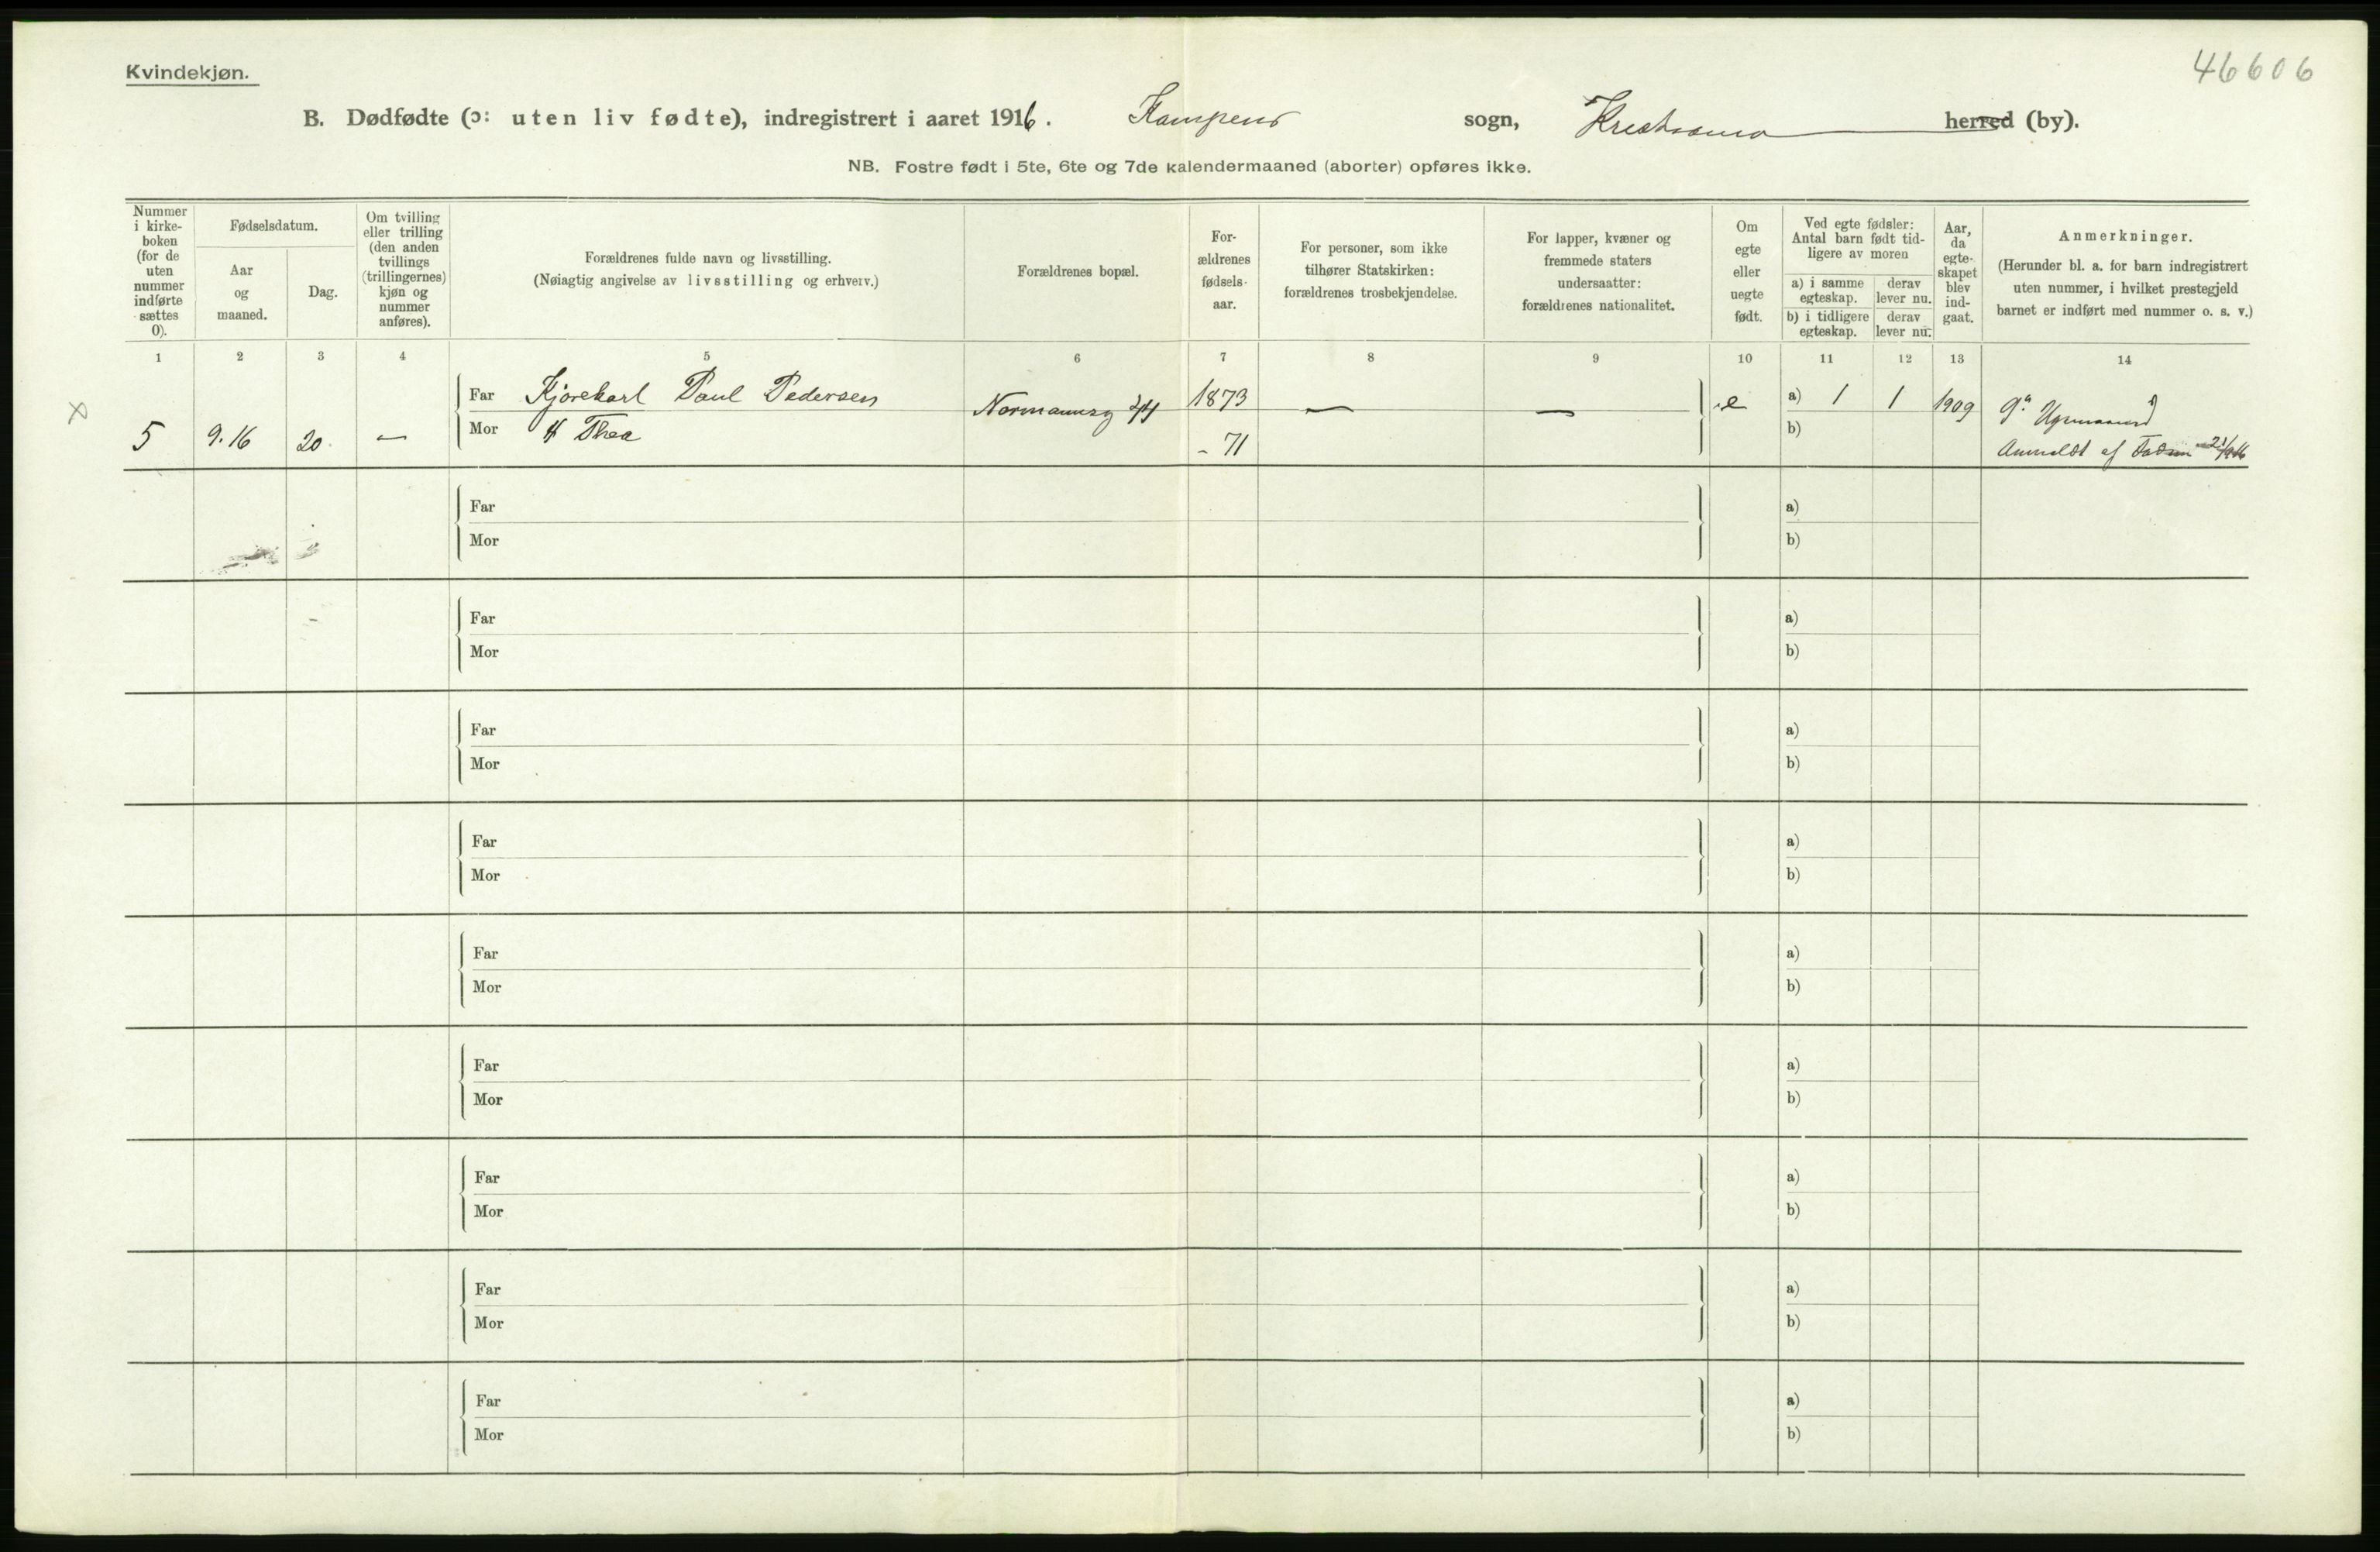 46606
Kvindekjøn.
B. Dødfødte (ɔ: uten liv fødte), indregistrert i aaret 1916. Kampens sogn, Kristiania herred (by).
NB. Fostre født i 5te, 6te og 7de kalendermaaned (aborter) opføres ikke.
Nummer i kirke-boken (for de uten nummer indførte sættes 0).
Fødselsdatum.
Aar og maaned.
Dag.
Om tvilling eller trilling (den anden tvillings (trillingernes) kjøn og nummer anføres).
Forældrenes fulde navn og livsstilling.
(Nøiagtig angivelse av livsstilling og erhverv.)
Forældrenes bopæl.
For-ældrenes fødsels-aar.
For personer, som ikke tilhører Statskirken: forældrenes trosbekjendelse.
For lapper, kvæner og fremmede staters undersaatter: forældrenes nationalitet.
Om egte eller uegte født.
Ved egte fødsler: Antal barn født tid-ligere av moren
a) i samme egteskap.
derav lever nu.
b) i tidligere egteskap.
derav lever nu.
Aar, da egte-skapet blev ind-gaat.
Anmerkninger.
(Herunder bl. a. for barn indregistrert uten nummer, i hvilket prestegjeld barnet er indført med nummer o. s. v.)
1 2 3 4 5 6 7 8 9 10 11 12 13 14
x
Far Kjørekarl Paul Pedersen Normannsg 1873 — — e a) 1 1 1909
5 9.16 20. — Mor Thea - 71 b) Anmeldt af
Far a)
Mor b)
Far a)
Mor b)
Far a)
Mor b)
Far a)
Mor b)
Far a)
Mor b)
Far a)
Mor b)
Far a)
Mor b)
Far a)
Mor b)
Far a)
Mor b)